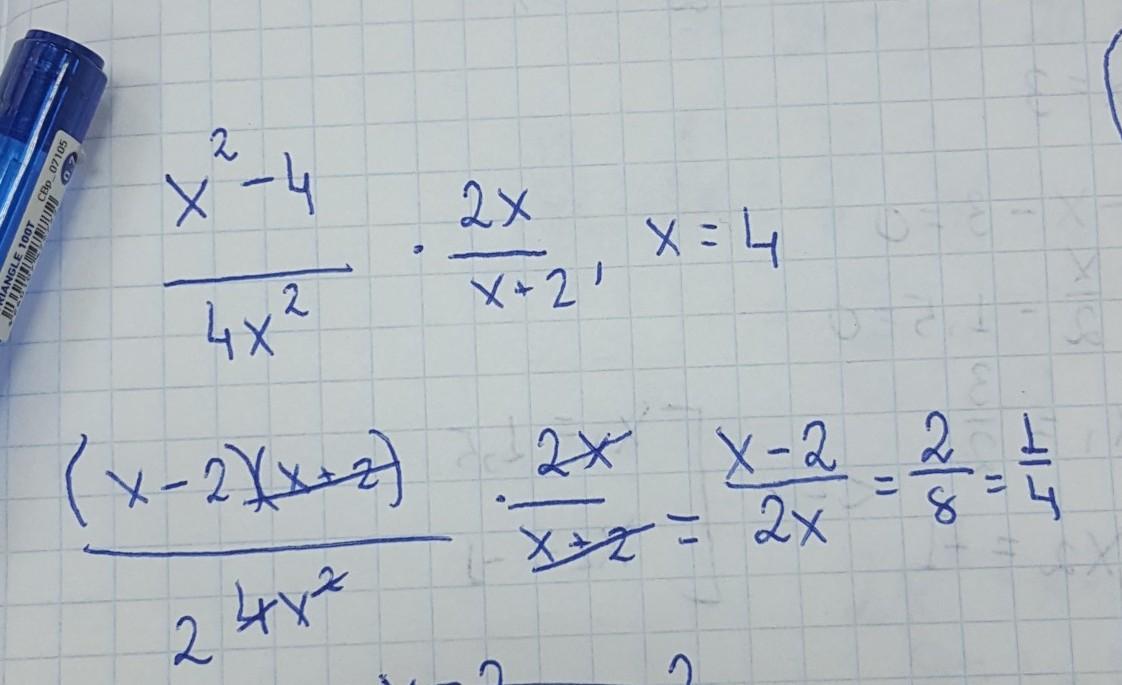 TRIANGLE 100T
CBp_07105
0.7
x² - 4 / 4x² · 2x / x + 2, x = 4
(x - 2)(x + 2) / 2 4x² · 2x / x + 2 = x - 2 / 2x = 2 / 8 = 1 / 4